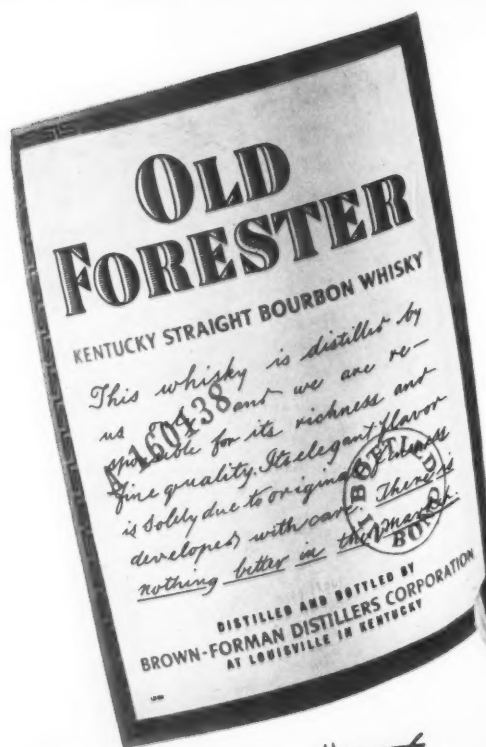 OLD
FORESTER
KENTUCKY STRAIGHT BOURBON WHISKY
This whisky is distilled by
us and we are re-
sponsible for its richness and
fine quality. Its elegant flavor
is solely due to original fineness
developed with care. There is
nothing better in the market.
A 160438
BOTTLED
IN
BOND
DISTILLED AND BOTTLED BY
BROWN-FORMAN DISTILLERS CORPORATION
AT LOUISVILLE IN KENTUCKY